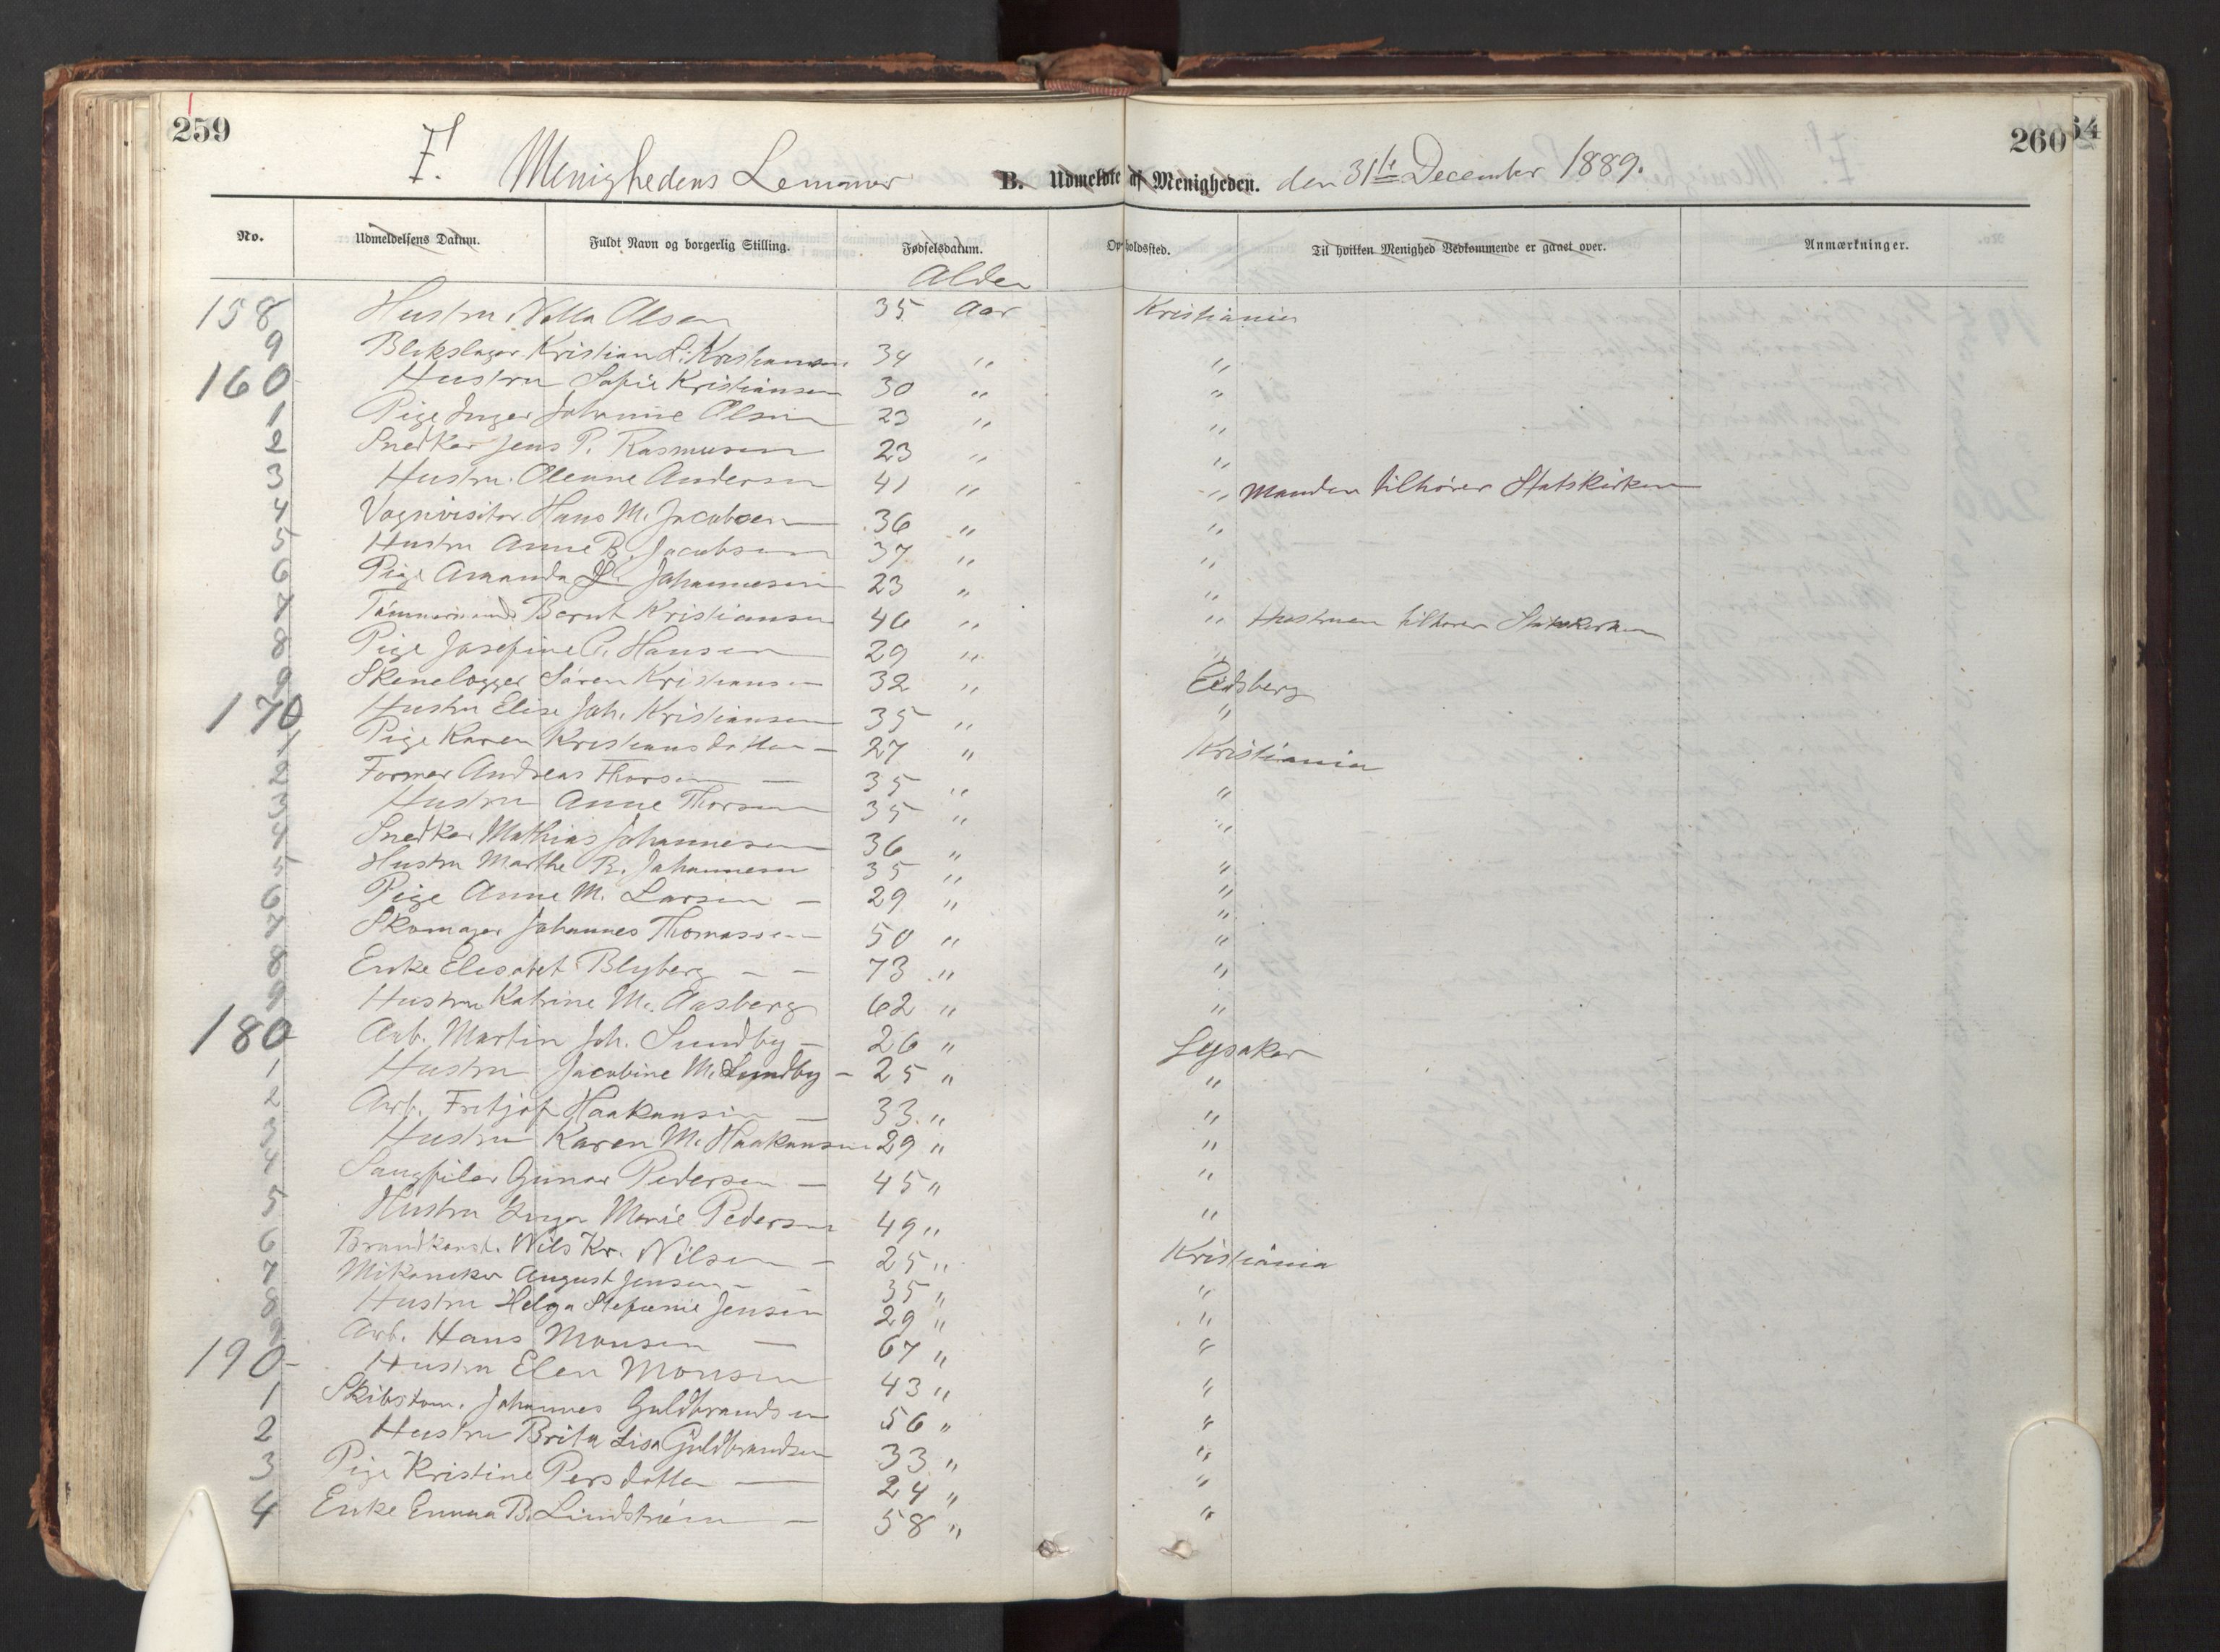 259
260
64
F. Menighedens Lemmer B. Udmeldte af Menigheden. den 31te December 1889.
No. Udmeldelsens Datum. Fuldt Navn og borgerlig Stilling. Fødselsdatum. Opholdssted. Til hvilken Menighed Vedkommende er gaaet over. Anmærkninger.
Alder
158 Hustru Olsen 35 Aar Kristiania
9 Blikslager Kristian Kristiansen 34 " "
160 Hustru Sofie Kristiansen 30 " "
1 Pige Inger Johanne Olsen 23 " "
2 Snedker Jens P. Rasmusen 23 " "
3 Hustru Oleane Andersen 41 " " Manden tilhører Statskirken
4 Vognvisitør Hans M. Jacobsen 36 " "
5 Hustru Anne B. Jacobsen 37 " "
6 Pige Amanda Johannesen 23 " "
7 Tømmermand Bernt Kristiansen 46 " " Hustruen tilhører Statskirken
8 Pige Josefine C. Hansen 29 " "
9 Skenelægger Søren Kristiansen 32 " Eidsberg
170 Hustru Elise Joh. Kristiansen 35 " "
1 Pige Karen Kristiansdatter — 27 " Kristiania
2 Former Andreas Thorsen — 35 " "
3 Hustru Anne Thorsen 35 " "
4 Snedker Mathias Johannesen 36 " "
5 Hustru Marthe B. Johannesen 35 " "
6 Pige Anne M. Larsen — 29 " "
7 Skomager Johannes Thomassen 50 " "
8 Enke Elisabet Blyberg — — 73 " "
9 Hustru Katrine M. Aasberg 62 " "
180 Arb. Martin Joh. Sundby — 26 " Lysaker
1 Hustru Jacobine M. Sundby — 25 " "
2 Arb. Fritjof Haakansen — 33 " "
3 Hustru Karen M. Haakansen 29 " "
4 Saugfiler Gunar Pedersen — 45 " "
5 Hustru Inga Marie Pedersen 49 " "
6 Brandkonst. Nils Kr. Nilsen — 25 " Kristiania
7 Mikaniker August Jensen — 35 " "
8 Hustru Helga Stefanie Jensen 29 " "
9 Arb. Hans Monsen — 67 " "
190 Hustru Elen Monsen 43 " "
1 Skibstøm. Johannes Guldbrandsen 56 " "
2 Hustru Brita Lisa Guldbrandsen 33 " "
3 Pige Kristine Persdatter — 24 " "
4 Enke Emma B. Lindstrøm — 58 " "